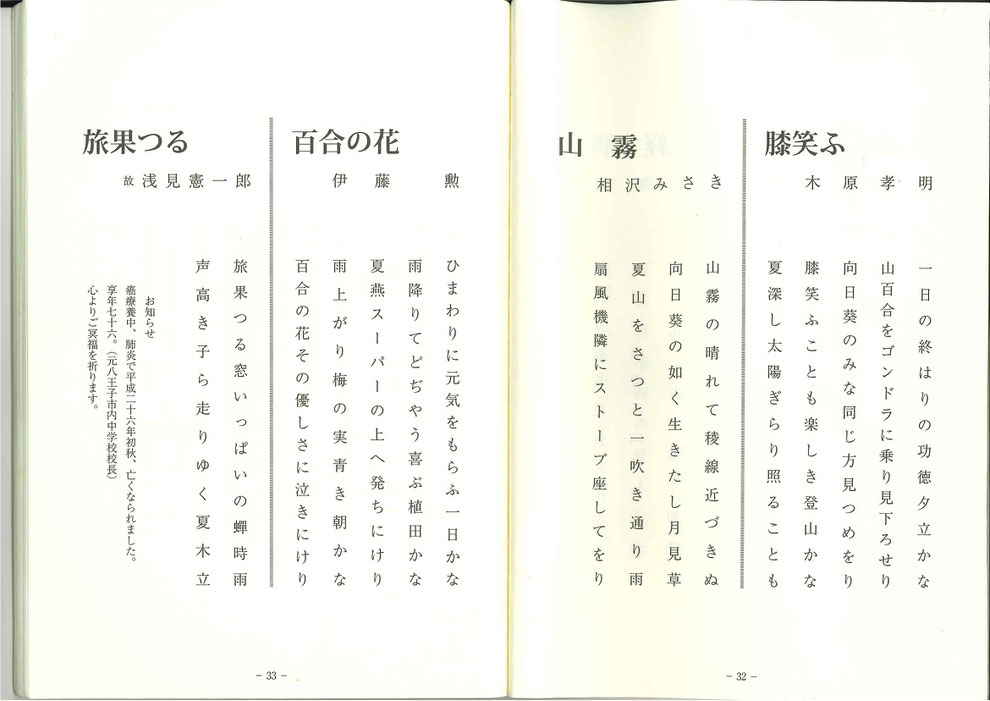 膝笑ふ
木原孝明
一日の終はりの功徳夕立かな
山百合をゴンドラに乗り見下ろせり
向日葵のみな同じ方見つめをり
膝笑ふことも楽しき登山かな
夏深し太陽ぎらり照ることも
山霧
相沢みさき
山霧の晴れて稜線近づきぬ
向日葵の如く生きたし月見草
夏山をさつと一吹き通り雨
扇風機隣にストーブ座してをり
－32－
百合の花
伊藤勲
ひまわりに元気をもらふ一日かな
雨降りてどぢやう喜ぶ植田かな
夏燕スーパーの上へ発ちにけり
雨上がり梅の実青き朝かな
百合の花その優しさに泣きにけり
旅果つる
故 浅見憲一郎
旅果つる窓いっぱいの蟬時雨
声高き子ら走りゆく夏木立
お知らせ
癌療養中、肺炎で平成二十六年初秋、亡くなられました。
享年七十六。（元八王子市内中学校校長）
心よりご冥福を祈ります。
－33－